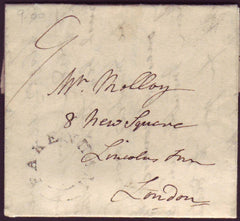 9
Mr. Molloy
8 New Square
Lincolns Inn
London